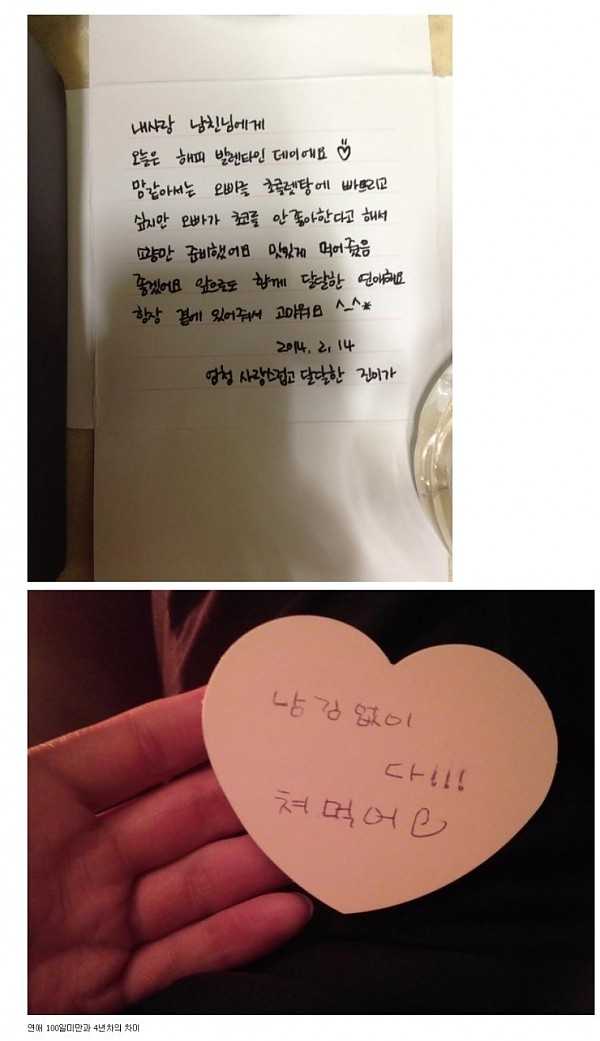 내사랑 남친님에게
오늘은 해피 발렌타인 데이에요 ♡
맘같아서는 오빠를 초콜렛탕에 빠뜨리고
싶지만 오빠가 쵸코를 안좋아한다고 해서
요량만 준비했어요 맛있게 먹어줬음
좋겠어요 앞으로도 함께 달달한 연애해요
항상 곁에 있어줘서 고마워요 ^_^*
2014. 2. 14
엄청 사랑스럽고 달달한 진이가
남김없이
다!!!
쳐먹어♡
연애 100일미만과 4년차의 차이